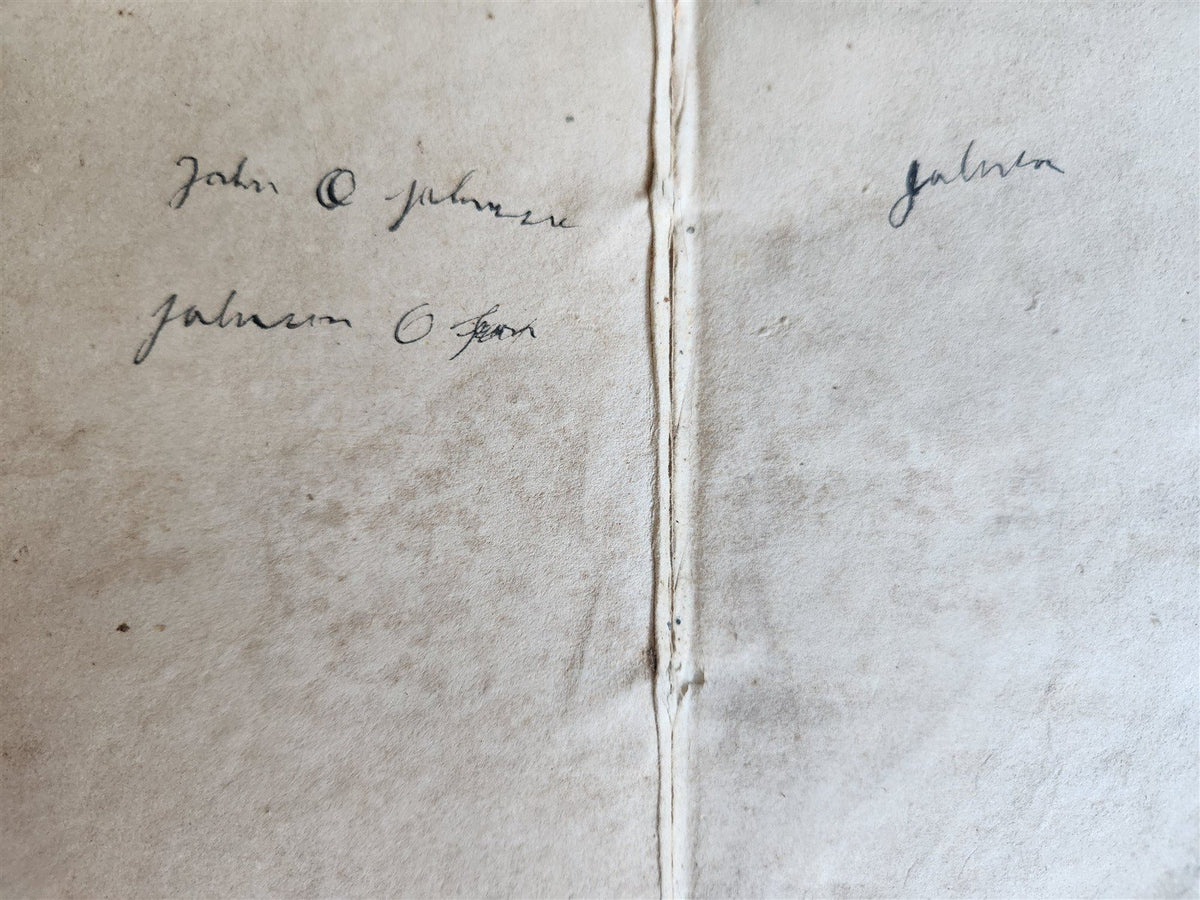 John O Johnson
Johnson O
Johnson